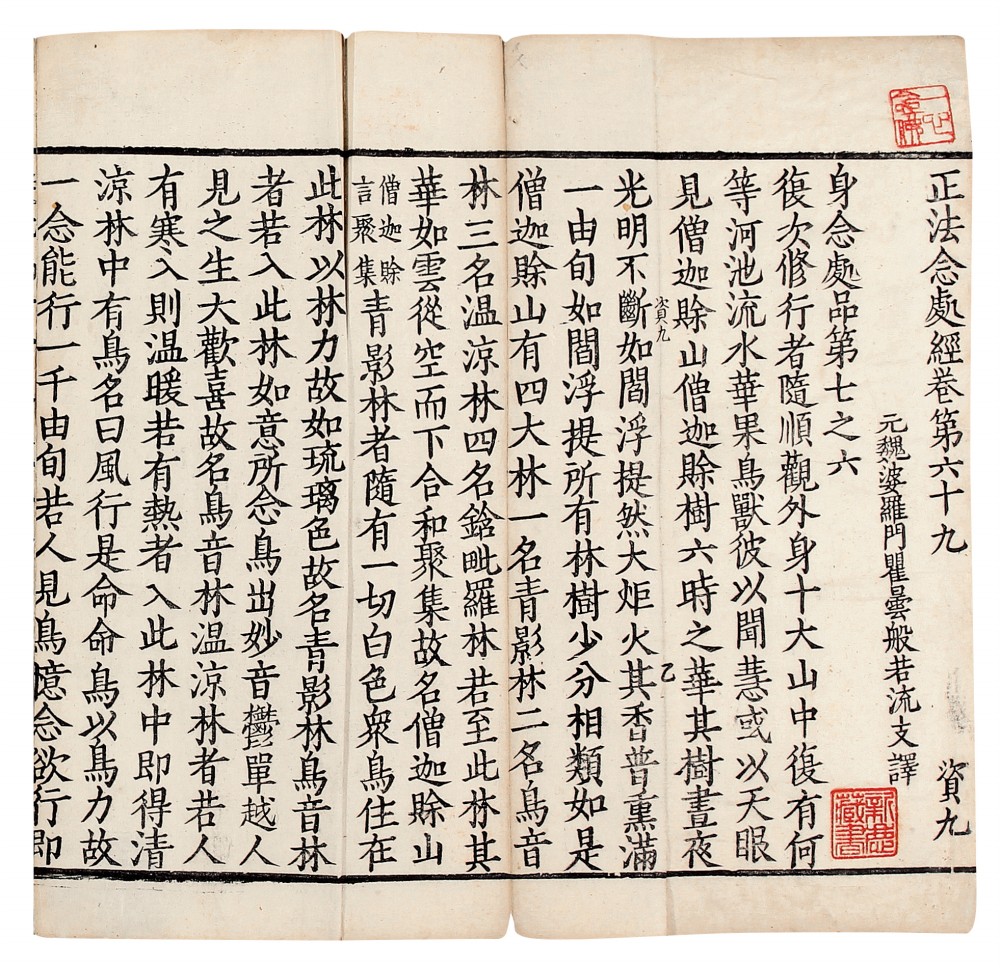 正法念處經卷第六十九 資九
元魏婆羅門瞿曇般若流支譯
身念處品第七之六
復次修行者隨順觀外身十大山中復有何
等河池流水華果鳥獸彼以聞慧或以天眼
見僧迦賒山僧迦賒樹六時之華其樹晝夜
資九 乙
光明不斷如閻浮提然大炬火其香普熏滿
一由旬如閻浮提所有林樹少分相類如是
僧迦賒山有四大林一名青影林二名鳥音
林三名温涼林四名鋡毗羅林若至此林其
華如雲從空而下合和聚集故名僧迦賒山
僧迦賒
言聚集
青影林者隨有一切白色衆鳥住在
此林以林力故如琉璃色故名青影林鳥音林
者若入此林如意所念鳥出妙音鬱單越人
見之生大歡喜故名鳥音林温涼林者若人
有寒入則温暖若有熱者入此林中即得清
涼林中有鳥名曰風行是命命鳥以鳥力故
一念能行一千由旬若人見鳥憶念欲行即
藏書